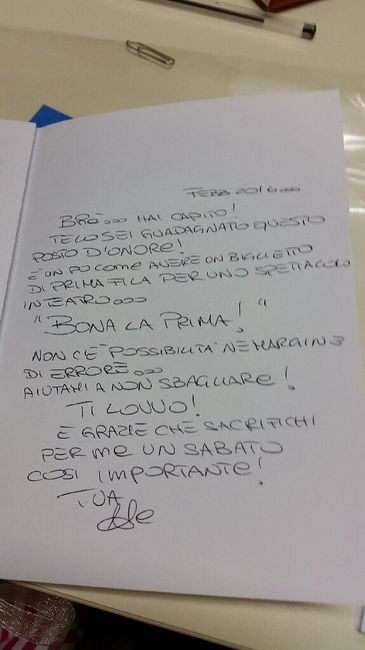 FEBB 2016...
BRÒ... HAI CAPITO!
TE LO SEI GUADAGNATO QUESTO
POSTO D'ONORE!
È UN PO COME AVERE UN BIGLIETTO
DI PRIMA FILA PER UNO SPETTACOLO
IN TEATRO...
"BONA LA PRIMA!"
NON C'È POSSIBILITÀ NE MARGINE
DI ERRORE...
AIUTAMI A NON SBAGLIARE!
TI LOVVO!
E GRAZIE CHE SACRIFICHI
PER ME UN SABATO
COSÌ IMPORTANTE!
TUA